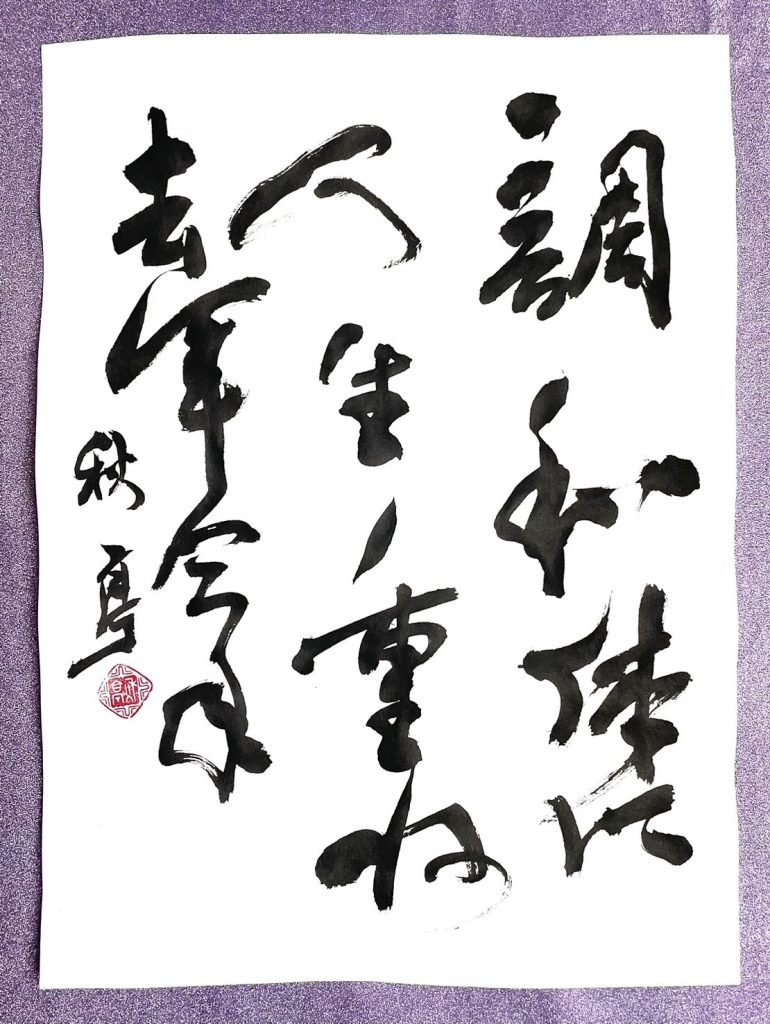 調和体に
人生重ね
去年今年
秋亭